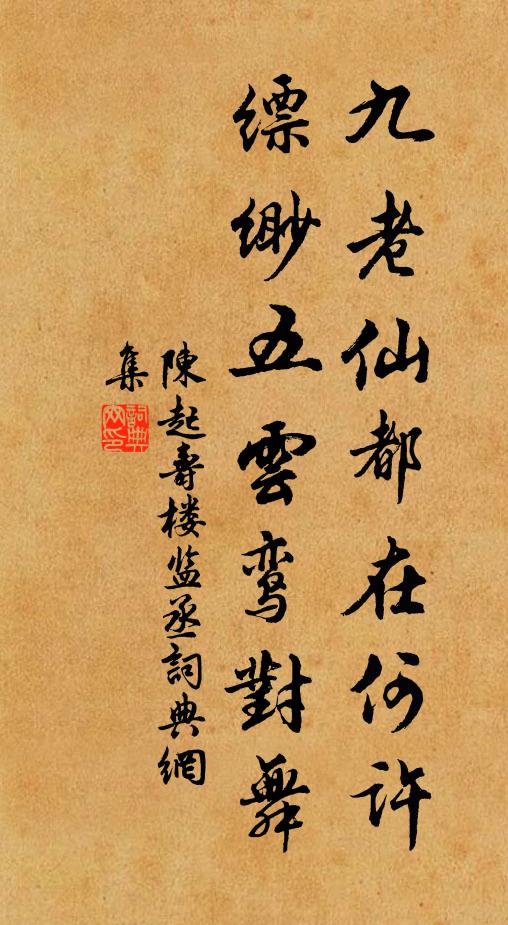 九老仙都在何许
缥缈五雲鸾對舞
陳起壽楼监丞詞典網
集
詞典網印